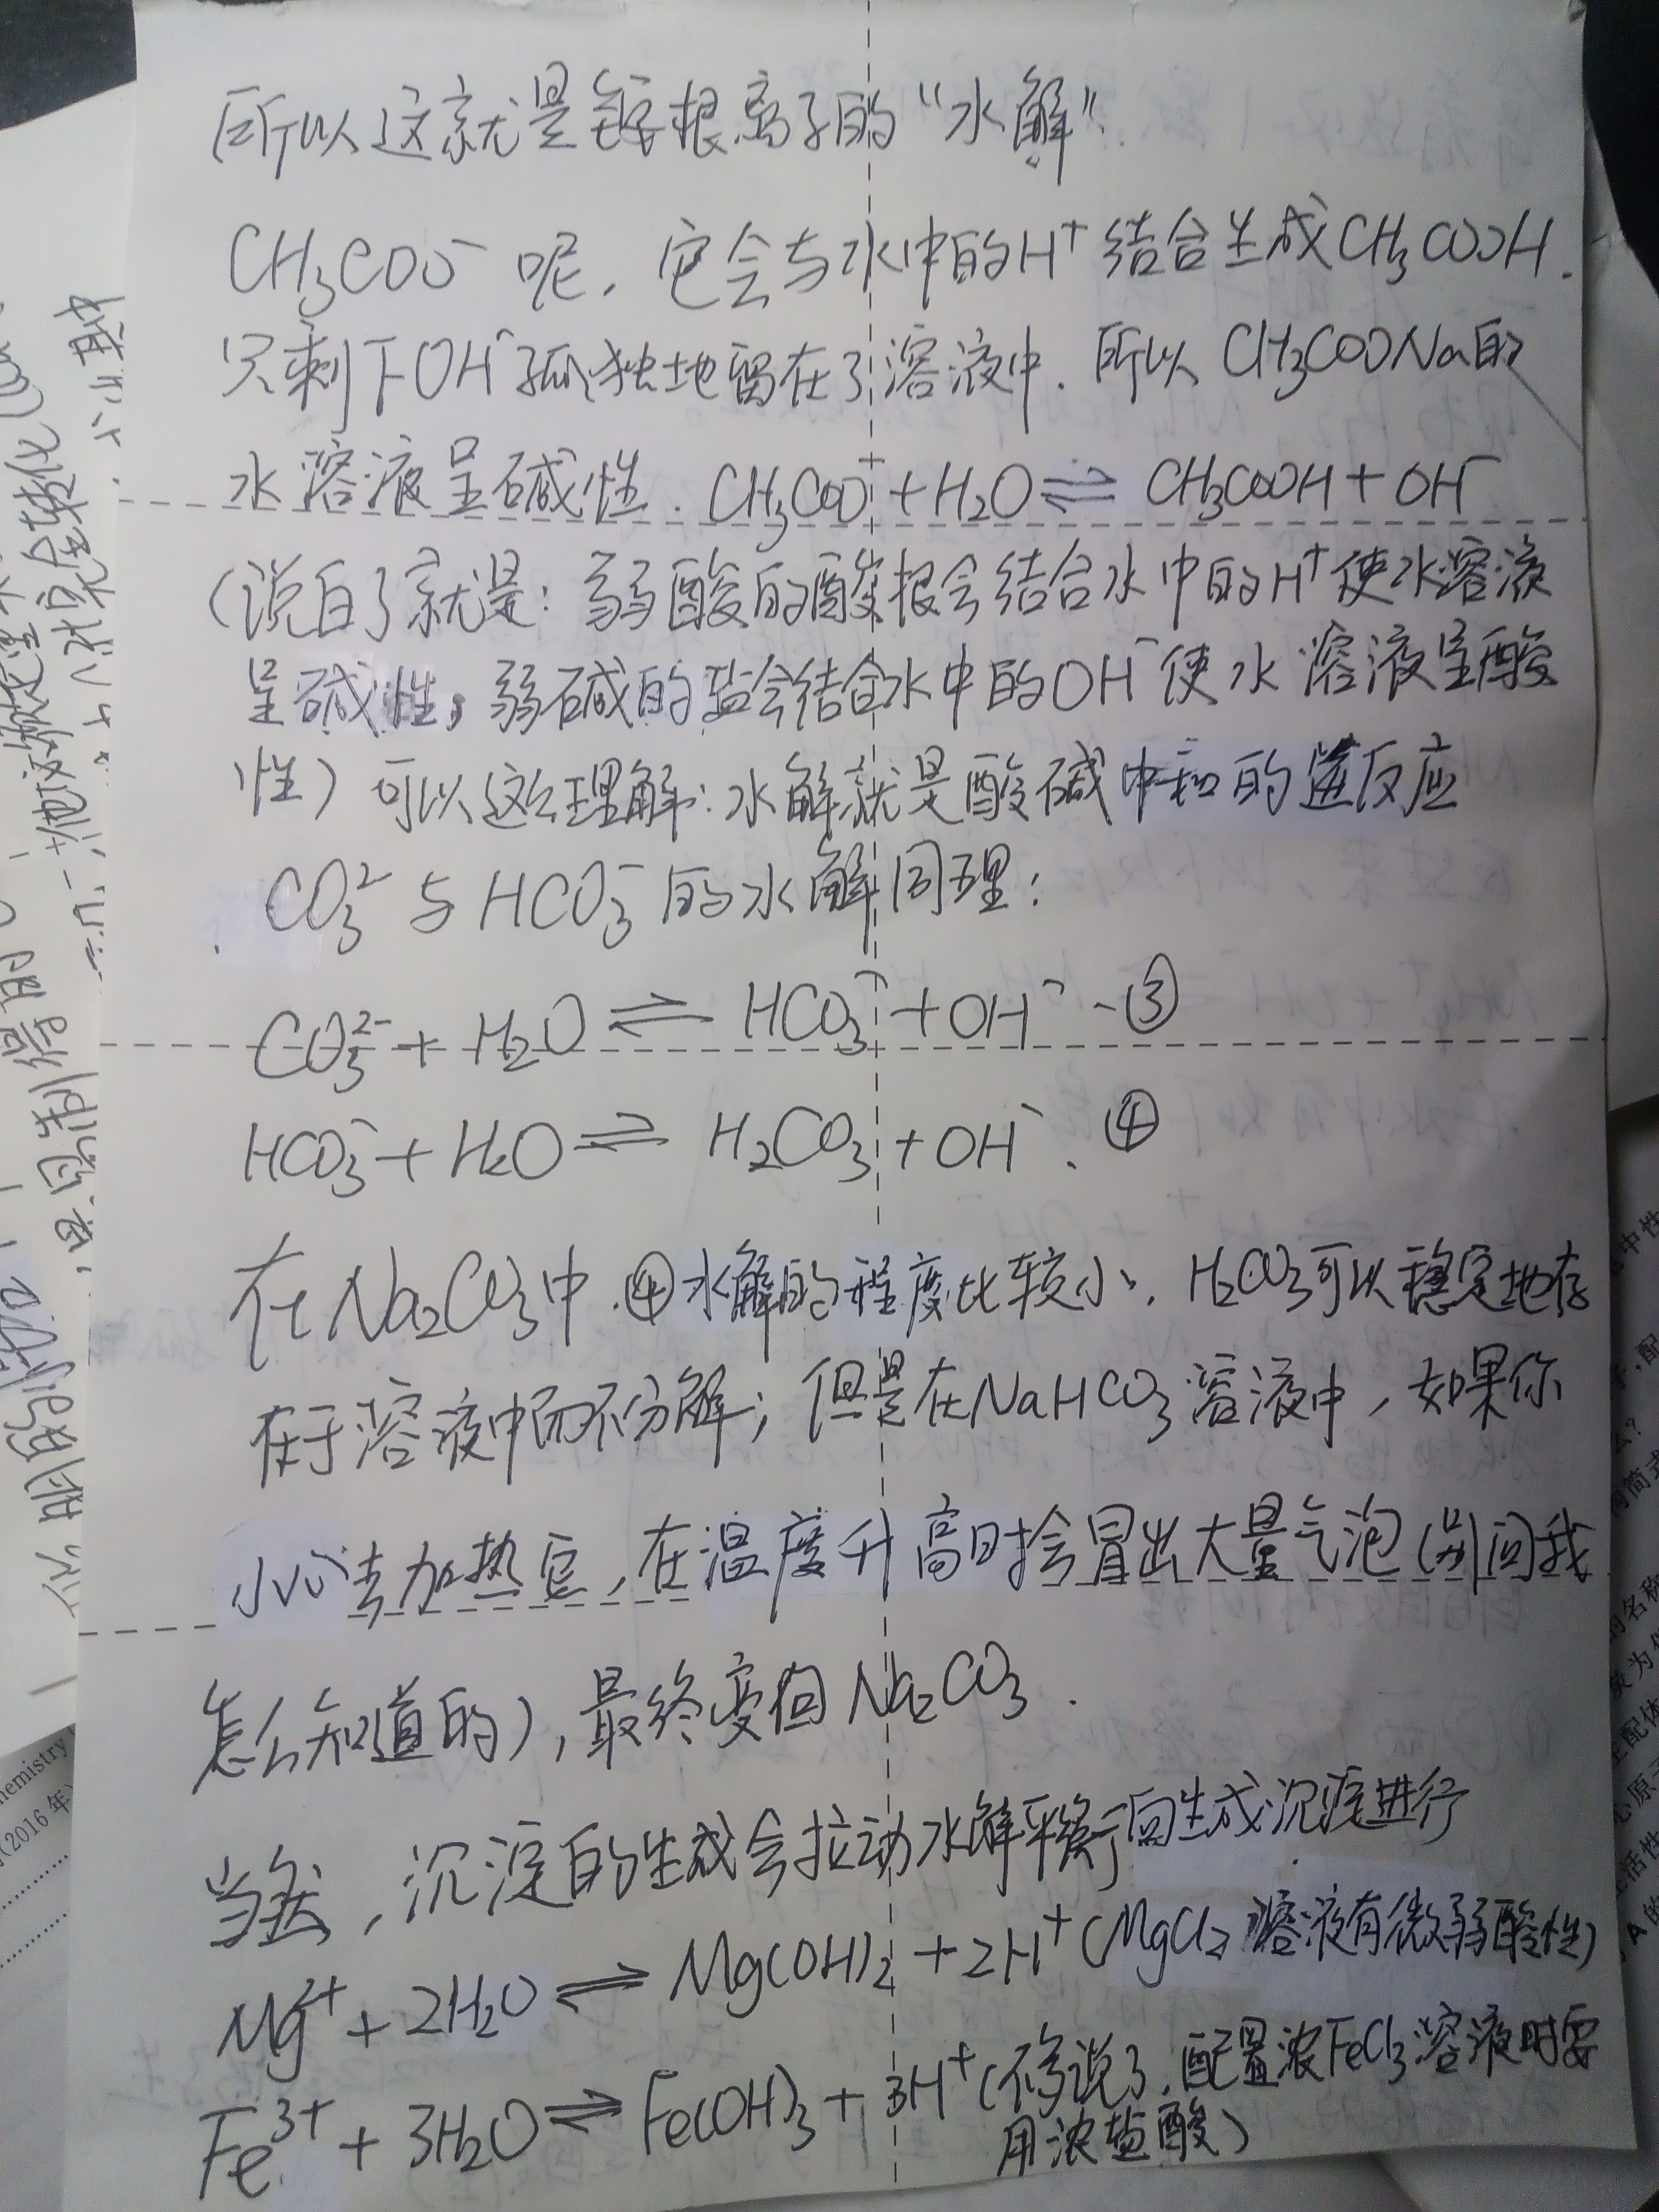 所以这就是铵根离子的“水解”.
CH₃COO⁻呢，它会与水中的H⁺结合生成CH₃COOH.
只剩下OH⁻孤独地留在了溶液中. 所以CH₃COONa的
水溶液呈碱性. CH₃COO⁻+H₂O⇌CH₃COOH+OH⁻
(说白了就是：弱酸的酸根会结合水中的H⁺使水溶液
呈碱性，弱碱的盐会结合水中的OH⁻使水溶液呈酸
性) 可以这么理解：水解就是酸碱中和的逆反应
CO₃²⁻与HCO₃⁻的水解同理：
CO₃²⁻+H₂O⇌HCO₃⁻+OH⁻ -③
HCO₃⁻+H₂O⇌H₂CO₃+OH⁻. ④
在Na₂CO₃中.④水解的程度比较小，H₂CO₃可以稳定地存
在于溶液中而不分解；但是在NaHCO₃溶液中，如果你
小心去加热它，在温度升高时会冒出大量气泡(别问我
怎么知道的)，最终变回Na₂CO₃.
当然，沉淀的生成会拉动水解平衡向生成沉淀进行
Mg²⁺+2H₂O⇌Mg(OH)₂+2H⁺(MgCl₂溶液有微弱酸性)
Fe³⁺+3H₂O⇌Fe(OH)₃+3H⁺(不多说了，配置浓FeCl₃溶液时要
用浓盐酸)
hemistry
(2016年)